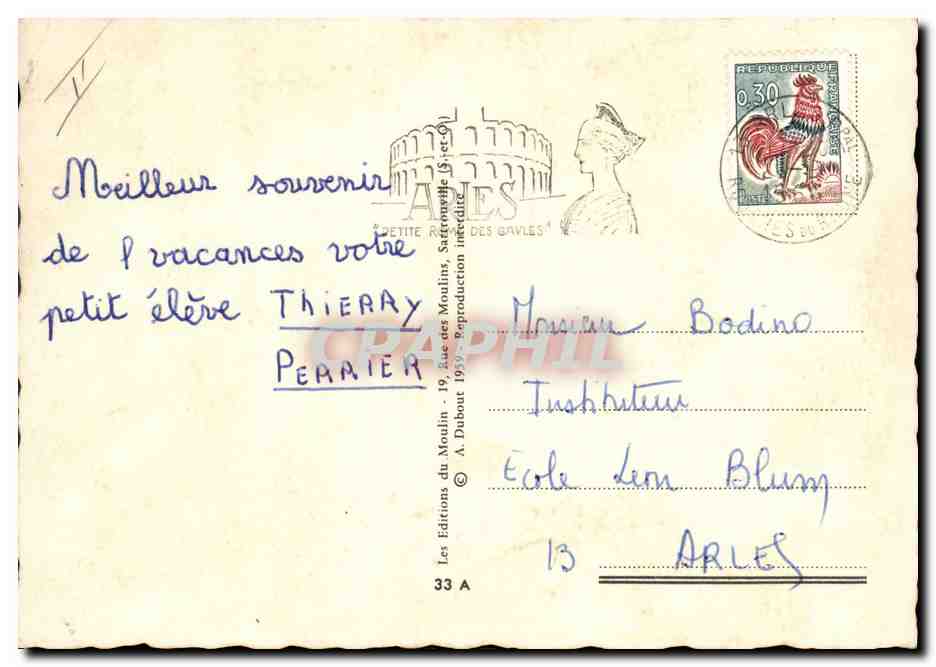 V
Meilleur souvenir
de l vacances votre
petit élève THIERRY
PERRIER
ARLES
"PETITE ROME DES GAVLES"
REPUBLIQUE FRANÇAISE
0,30
POSTES
Les Editions du Moulin - 19, Rue des Moulins, Sartrouville (S.-et-O.)
© A. Dubout 1959 - Reproduction interdite
CRAPHIL
Monsieur Bodino
Instituteur
Ecole Leon Blum
13 ARLES
33 A